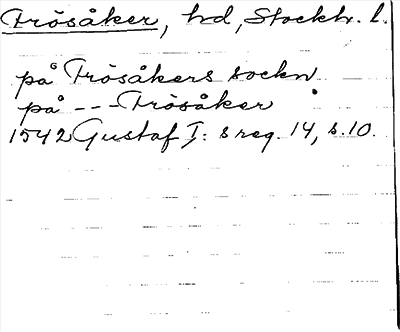 Frösåker, hd, Stockh. l.
på Frösåkers sockn
på --- Frösåker
1542 Gustaf I: s reg. 14, s. 10.